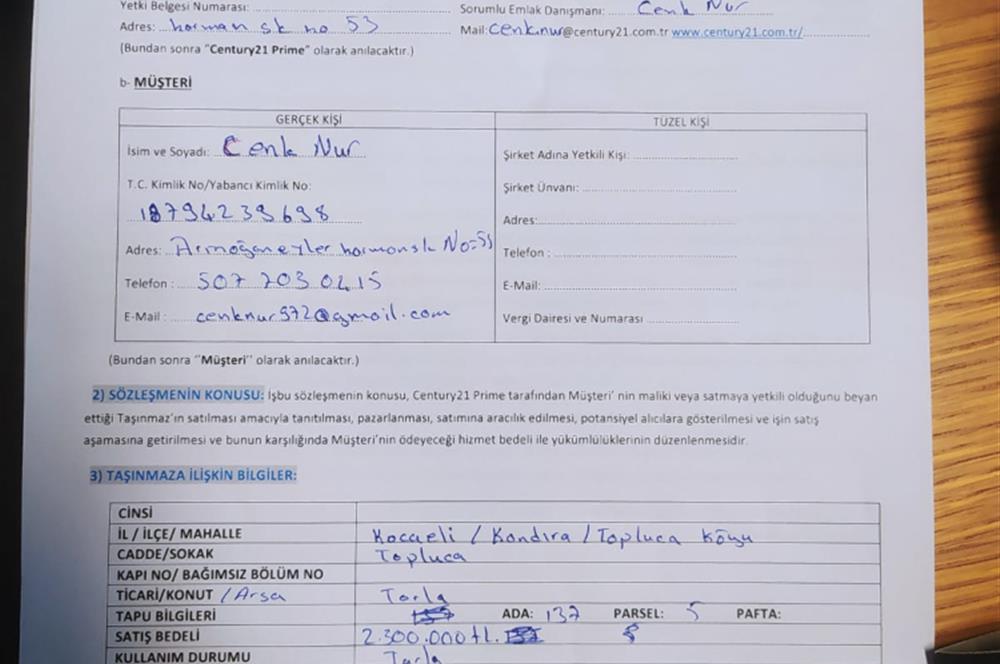 Yetki Belgesi Numarası: Sorumlu Emlak Danışmanı: Cenk Nur
Adres: harman sk no 53 Mail: cenk.nur@century21.com.tr www.century21.com.tr/
(Bundan sonra "Century21 Prime" olarak anılacaktır.)
b- MÜŞTERİ
GERÇEK KİŞİ TÜZEL KİŞİ
İsim ve Soyadı: Cenk Nur
Şirket Adına Yetkili Kişi:
T.C. Kimlik No/Yabancı Kimlik No:
Şirket Ünvanı:
18794239698
Adres:
Adres: Armağaneyler harman sk No=53
Telefon :
Telefon : 507 203 0415
E-Mail:
E-Mail : cenknur972@gmail.com
Vergi Dairesi ve Numarası
(Bundan sonra "Müşteri" olarak anılacaktır.)
2) SÖZLEŞMENİN KONUSU: İşbu sözleşmenin konusu, Century21 Prime tarafından Müşteri' nin maliki veya satmaya yetkili olduğunu beyan
ettiği Taşınmaz'ın satılması amacıyla tanıtılması, pazarlanması, satımına aracılık edilmesi, potansiyel alıcılara gösterilmesi ve işin satış
aşamasına getirilmesi ve bunun karşılığında Müşteri'nin ödeyeceği hizmet bedeli ile yükümlülüklerinin düzenlenmesidir.
3) TAŞINMAZA İLİŞKİN BİLGİLER:
CİNSİ
İL / İLÇE/ MAHALLE Kocaeli / Kandıra / Topluca Köyü
CADDE/SOKAK Topluca
KAPI NO/ BAĞIMSIZ BÖLÜM NO
TİCARİ/KONUT /Arsa Tarla
TAPU BİLGİLERİ ADA: 137 PARSEL: 5 PAFTA:
SATIŞ BEDELİ 2.300.000 tl.
KULLANIM DURUMU Tarla